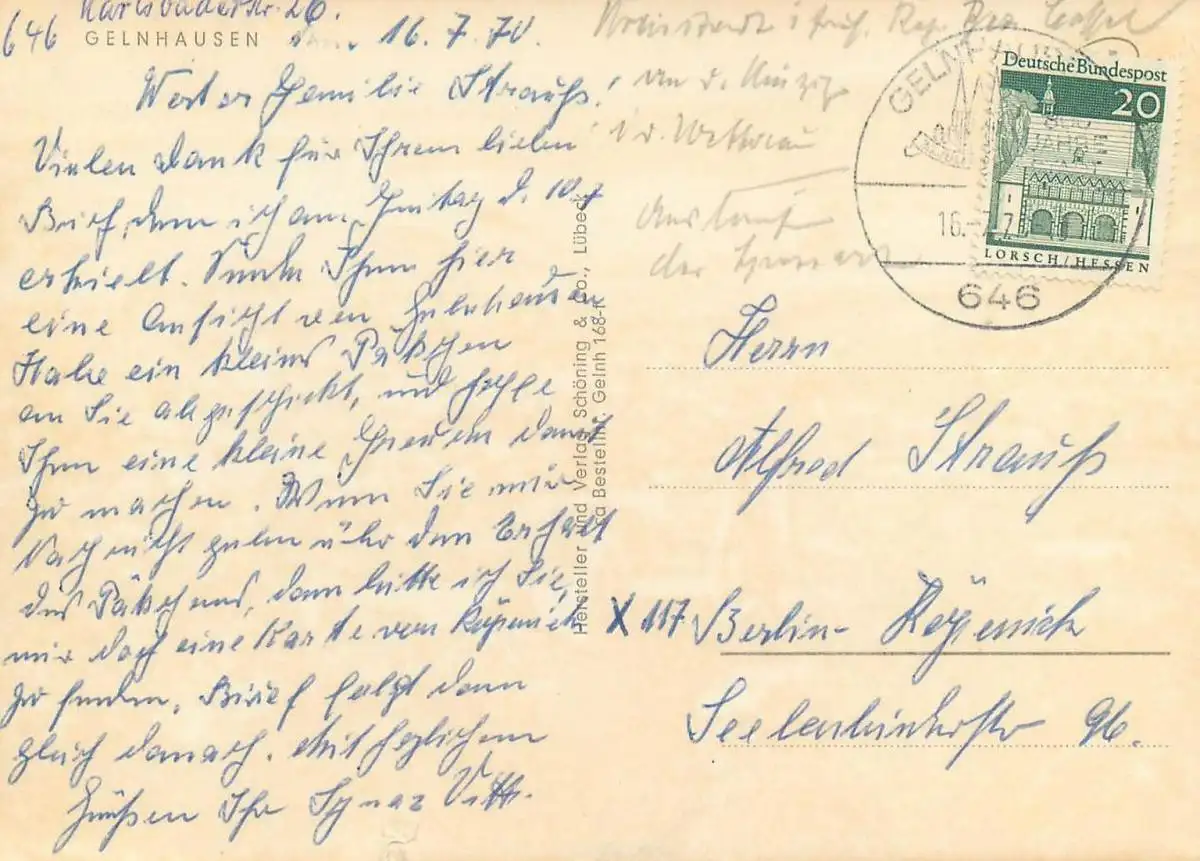 Karlsbaderstr. 26.
646 GELNHAUSEN 16.7.70.
Werter Familie Strauß!
Vielen Dank für Ihren lieben
Brief, dem ich am Freitag d. 10.7
erhielt. Sende Ihnen hier
eine Ansicht von Gelnhausen
Habe ein kleines Päkchen
an Sie abgeschickt, und hoffe
Ihnen eine kleine Freude damit
zu machen. Wenn Sie mir
Nachricht geben über den Erhalt
des Päkchens, dann bitte ich Sie,
mir doch eine Karte von Köpenick
zu senden. Brief folgt dann
gleich danach. Mit herzlichem
Grüßen Ihr Ignaz
Hersteller und Verlag Schöning & Co., Lübeck
Bestellnr. Gelnh 168-R
Kreisstadt i. Reg. Bez. Cassel
an d. Kinzig
i. d. Wetterau
der
GELNHAUSEN
JAHRE
16.-7.7
646
Deutsche Bundespost
20
LORSCH/HESSEN
Herrn
Alfred Strauß
X 117 Berlin-Köpenick
96.